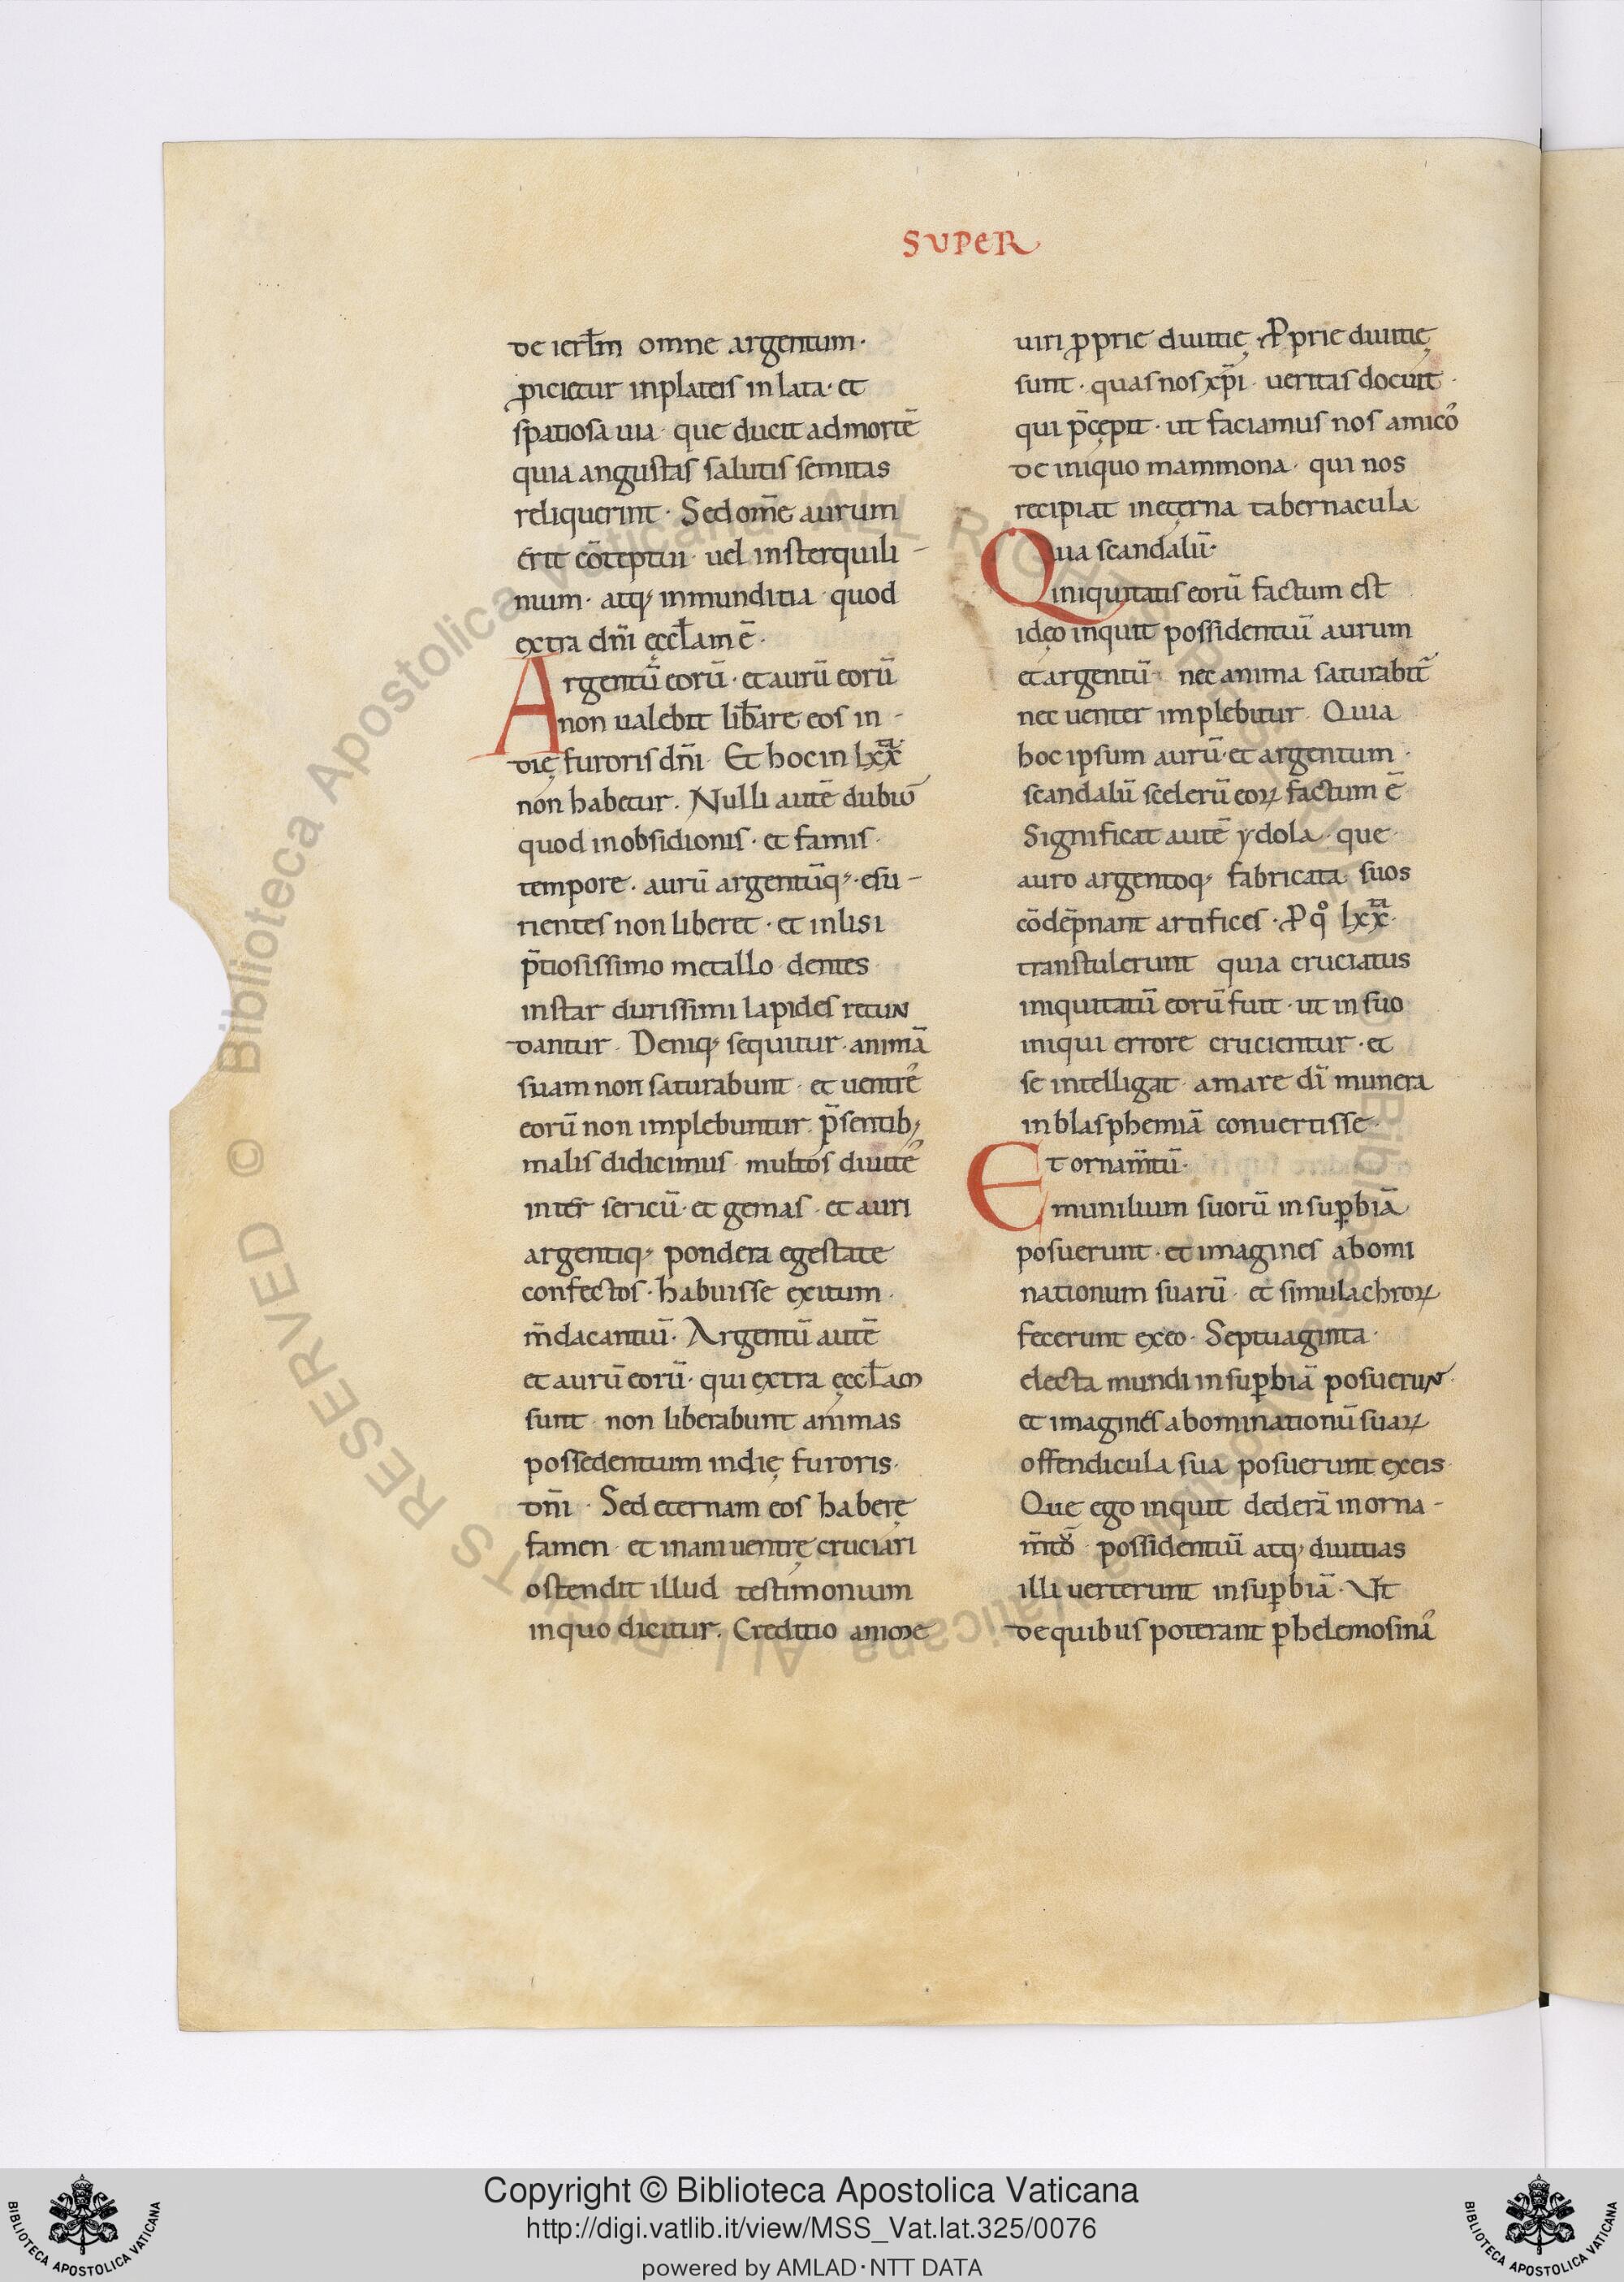 SUPER
de ierl̄m omne argentum·
ꝓicietur inplateis in lata· et
spatiosa uia· que ducit admortē
quia angustas salutis semitas
reliquerint· Sed om̄e aurum
erit cōteptui· uel insterquili-
nium· atq; inmunditia· quod
extra dn̄i ęccl̄am ē·
Argentū eorū· et aurū eorū
non ualebit lib̄are eos in-
dię furoris dn̄i· Et hoc in lxx̄
non habetur. Nulli autē dubiū
quod inobsidionis· et famis·
tempore· aurū argentūq;· esu-
rientes non liberet· et inlisi
p̄tiosissimo metallo dentes
instar durissimi lapides retun
dantur. Deniq; sequitur· animā
suam non saturabunt· et uentrē
eorū non implebuntur. p̄sentib;
malis didicimus multos diuitē
inter sericū· et gemas· et auri
argentiq; pondera egestate
confectos· habuisse exitum·
m̄dacantiū· Argentū autē
et aurū eorū· qui extra ęccl̄am
sunt non liberabunt animas
possedentium indię furoris·
dn̄i· Sed eternam eos haberę
famen· et inani uentrę cruciari
ostendit illud testimonium
inquo dicitur. Creditio animę
uiri ꝓprie diuitię· Ꝓprie diuitię
sunt· quas nos xp̄i· ueritas docuit·
qui p̄cępit· ut faciamus nos amicō
de iniquo mammona· qui nos
recipiat ineterna tabernacula
Qua scandalū·
iniquitatis eorū factum est
idęo inquit possidentiū aurum
et argentū· nec anima saturabit̄
nec uenter implebitur. Quia
hoc ipsum aurū· et argentum·
scandalū scelerū eoꝝ factum ē
Significat autē ydola· que·
auro argentoq; fabricata suos
cōdēpnant artifices· P qº lxx̄·
transtulerunt quia cruciatus
iniquitatū eorū fuit· ut in suo
iniqui errore crucientur· et
se intelligat· amare dī munera
inblasphemiā conuertisse·
Et ornam̄tū·
munilium suorū insuꝑbiā
posuerunt· et imagines abomi
nationum suarū· et simulachroꝝ
fecerunt exeo· Septuaginta·
electa mundi insuꝑbiā posuerun·
et imagines abominationū suaꝝ
offendicula sua posuerunt exeis·
Que ego inquit dederā inorna-
m̄tō possidentiū atq; diuitias
illi uerterunt insuꝑbiā· Vt
dequibus poterant ꝑhelemosinā
Copyright © Biblioteca Apostolica Vaticana
http://digi.vatlib.it/view/MSS_Vat.lat.325/0076
powered by AMLAD·NTT DATA